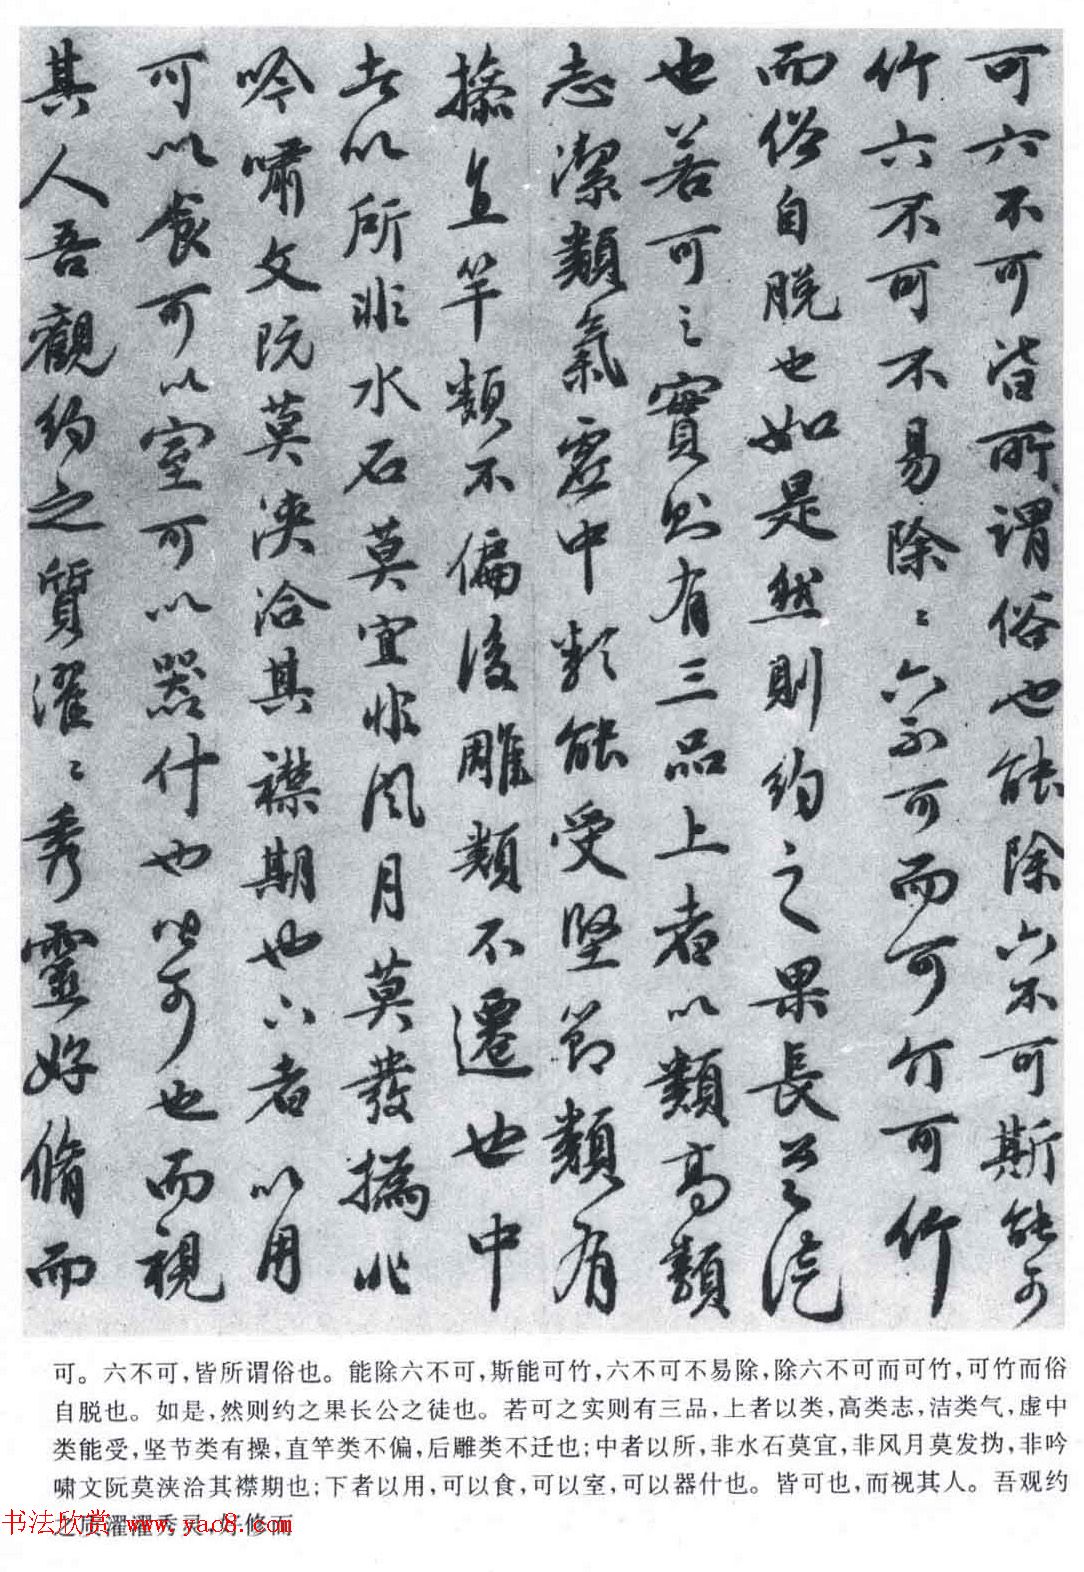 可六不可皆所謂俗也能除六不可斯能可
竹六不可不易除〻六不可而可竹可竹
而俗自脱也如是然則約之果長公之徒
也若可之實則有三品上者以類高類
志潔類氣虚中類能受堅節類有
操直竿類不偏後雕類不遷也中
者以所非水石莫宜非風月莫發撝非
吟嘯文阮莫浹洽其襟期也下者以用
可以食可以室可以器什也皆可也而視
其人吾觀約之質濯〻秀靈好脩而
可。六不可,皆所谓俗也。能除六不可,斯能可竹,六不可不易除,除六不可而可竹,可竹而俗
自脱也。如是,然则约之果长公之徒也。若可之实则有三品,上者以类,高类志,洁类气,虚中
类能受,坚节类有操,直竿类不偏,后雕类不迁也;中者以所,非水石莫宜,非风月莫发㧑,非吟
啸文阮莫浃洽其襟期也;下者以用,可以食,可以室,可以器什也。皆可也,而视其人。吾观约
之质濯濯秀灵,好修而
书法欣赏 www.yac8.com